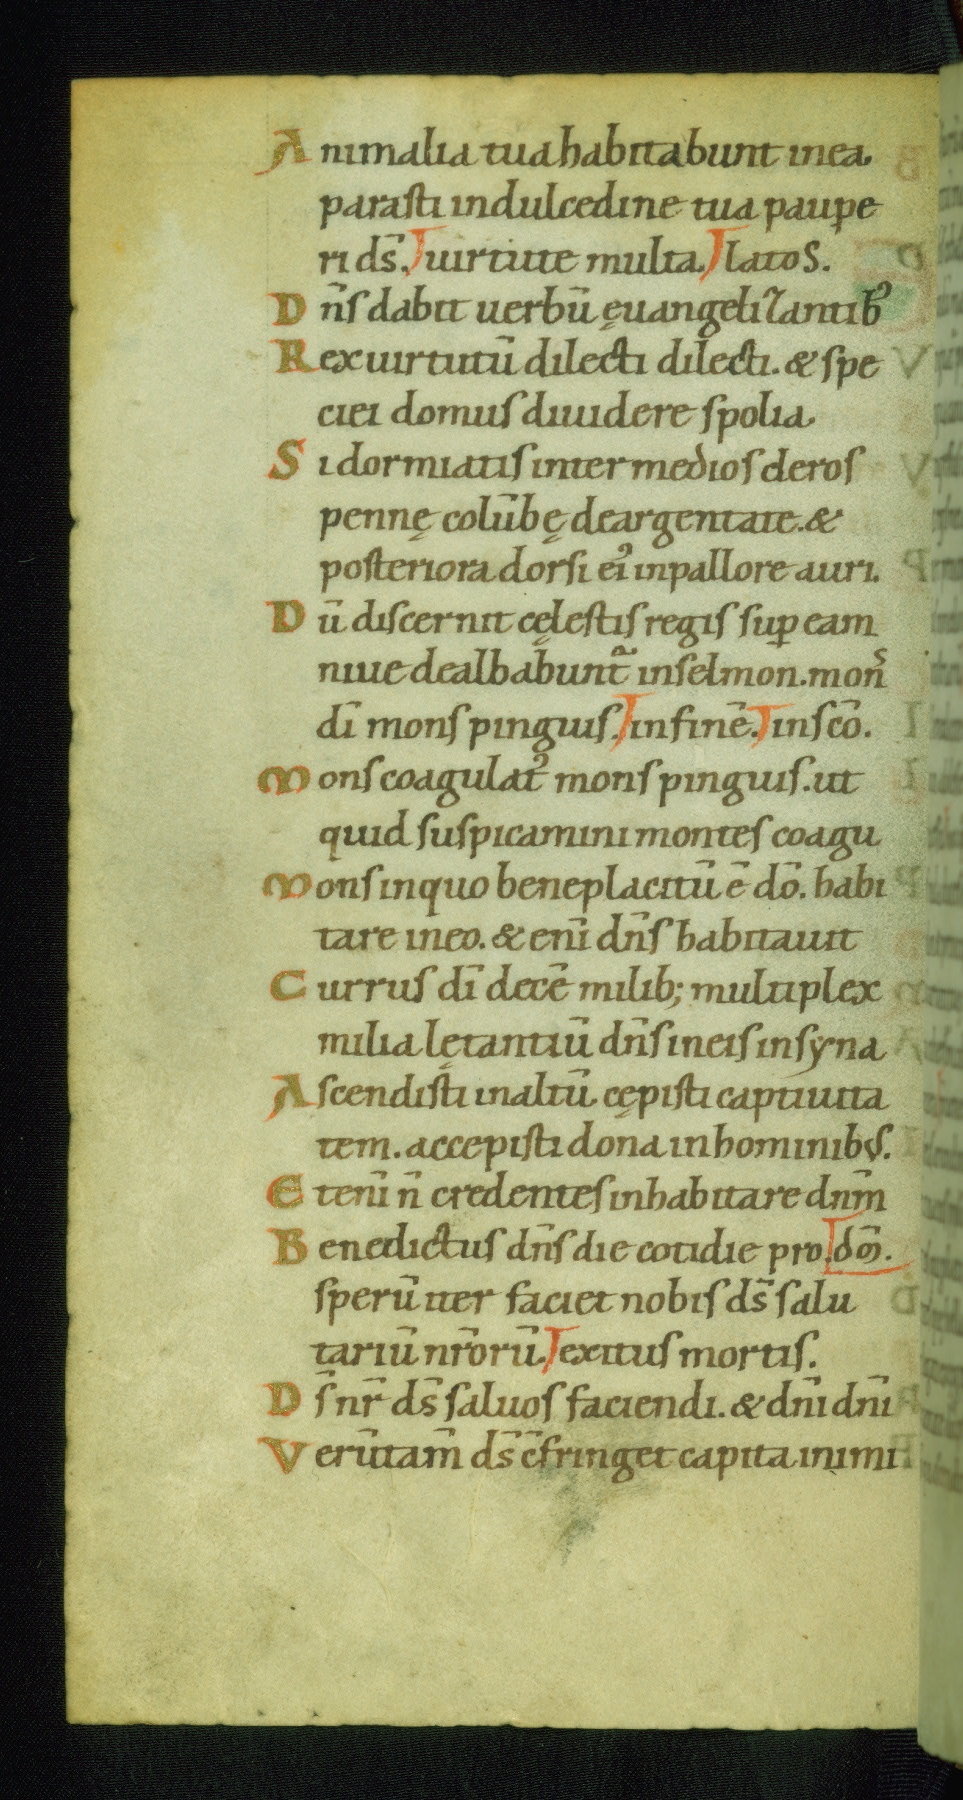 Animalia tua habitabunt in ea.
parasti in dulcedine tua paupe
ri ds̄. uirtute multa. latos.
Dn̄s dabit uerbū ęuangelizantib⁹
Rex uirtutū dilecti dilecti. & spe
ciei domus diuidere spolia.
Si dormiatis inter medios cleros
pennę colūbę deargentate. &
posteriora dorsi ei⁹ in pallore auri.
Dū discernit cęlestis regis sup eam
niue dealbabunt̄ in selmon. mons̄
dī mons pinguis. in finē. in scō.
Mons coagulat⁹ mons pinguis. ut
quid suspicamini montes coagu
Mons in quo beneplacitū ē dō. habi
tare in eo. & enī dn̄s habitauit
Currus dī decē milib; multiplex
milia lętantiū dn̄s in eis in syna
Ascendisti in altū cępisti captiuita
tem. accepisti dona in hominibus.
Etenī n̄ credentes inhabitare dn̄m
Benedictus dn̄s die cotidie pro. dōm.
sperū iter faciet nobis ds̄ salu
tariū nr̄orū. exitus mortis.
Ds̄ nr̄ ds̄ saluos faciendi. & dn̄i dn̄i
Verūtam̄ ds̄ c̄fringet capita inimi